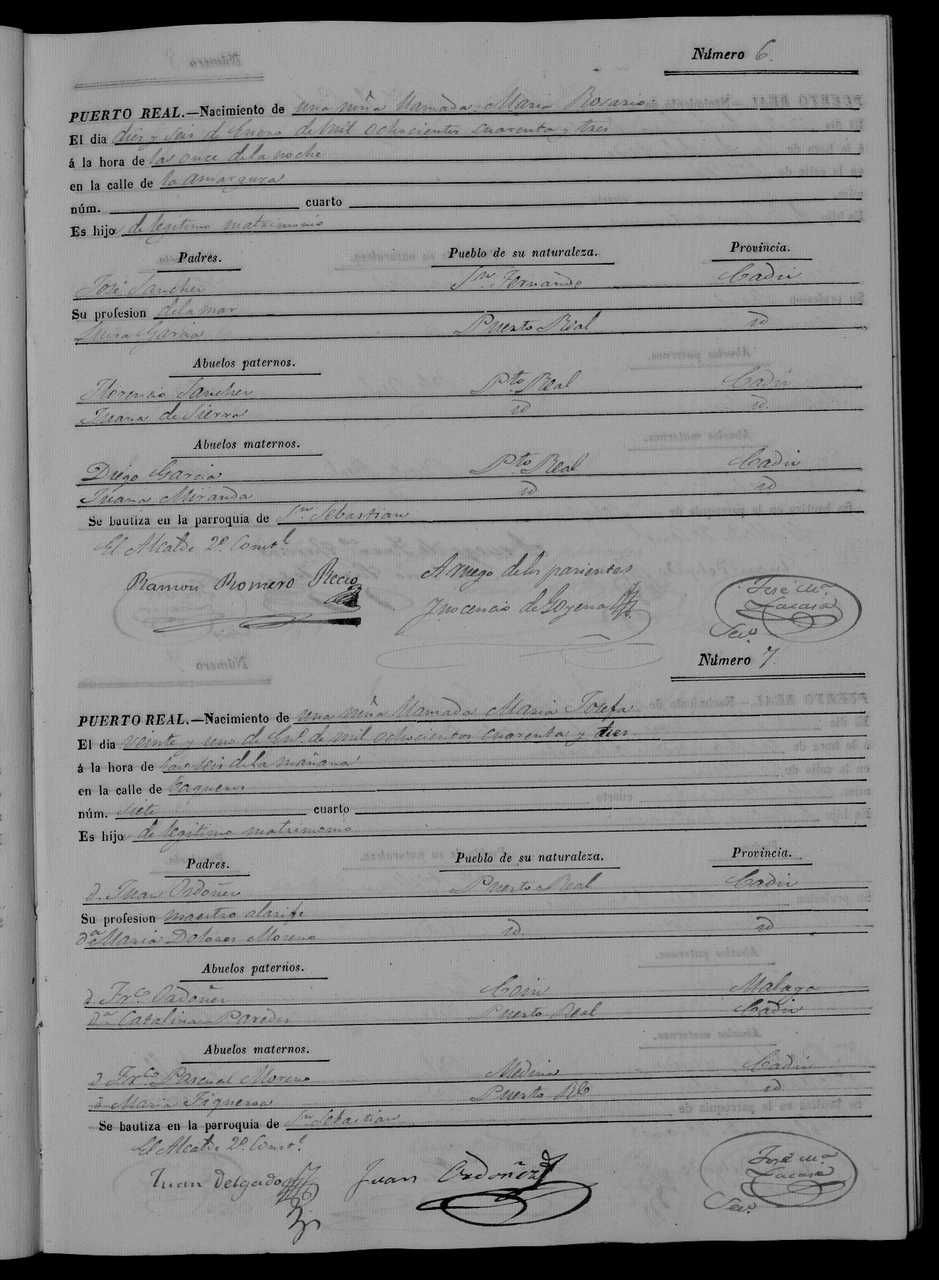 Número 6.
PUERTO REAL.—Nacimiento de una niña llamada Maria Rosario
El dia diez y seis de Enero de mil ochocientos cuarenta y tres
á la hora de las once de la noche
en la calle de la amargura
núm. cuarto
Es hijo de legitimo matrimonio
Padres. Pueblo de su naturaleza. Provincia.
José Sanchez Sn. Fernando Cadiz
Su profesion de la mar
Garcia Puerto Real id
Abuelos paternos.
Florencio Sanchez Pto. Real Cadiz
Juana de Sierra id id.
Abuelos maternos.
Diego Garcia Pto. Real Cadiz
Juana Miranda id id
Se bautiza en la parroquia de Sn. Sebastian
El Alcalde 2º. Constl.
Ramon Romero Recio
A ruego de los parientes
Inocencio de Goyena
José Ma.
Lacasa
Sno.
Número 7
PUERTO REAL.—Nacimiento de una niña llamada Maria Josefa
El dia veinte y uno de Eno. de mil ochocientos cuarenta y tres
á la hora de las seis de la mañana
en la calle de Vaqueros
núm. siete cuarto
Es hijo de legitimo matrimonio
Padres. Pueblo de su naturaleza. Provincia.
d. Juan Ordoñez Puerto Real Cadiz
Su profesion maestro alarife
da. Maria Dolores Moreno id. id
Abuelos paternos.
d. Frco. Ordoñez Coin Malaga
Da. Catalina Paredes Puerto Real Cadiz
Abuelos maternos.
d Frco. Pascual Moreno Medina Cadiz
Maria Figueroa Puerto Rl. id
Se bautiza en la parroquia de Sn. Sebastian
El Alcalde 2º. Constl.
Juan Delgado
Juan Ordoñez
José Ma
Lacasa
Sno.